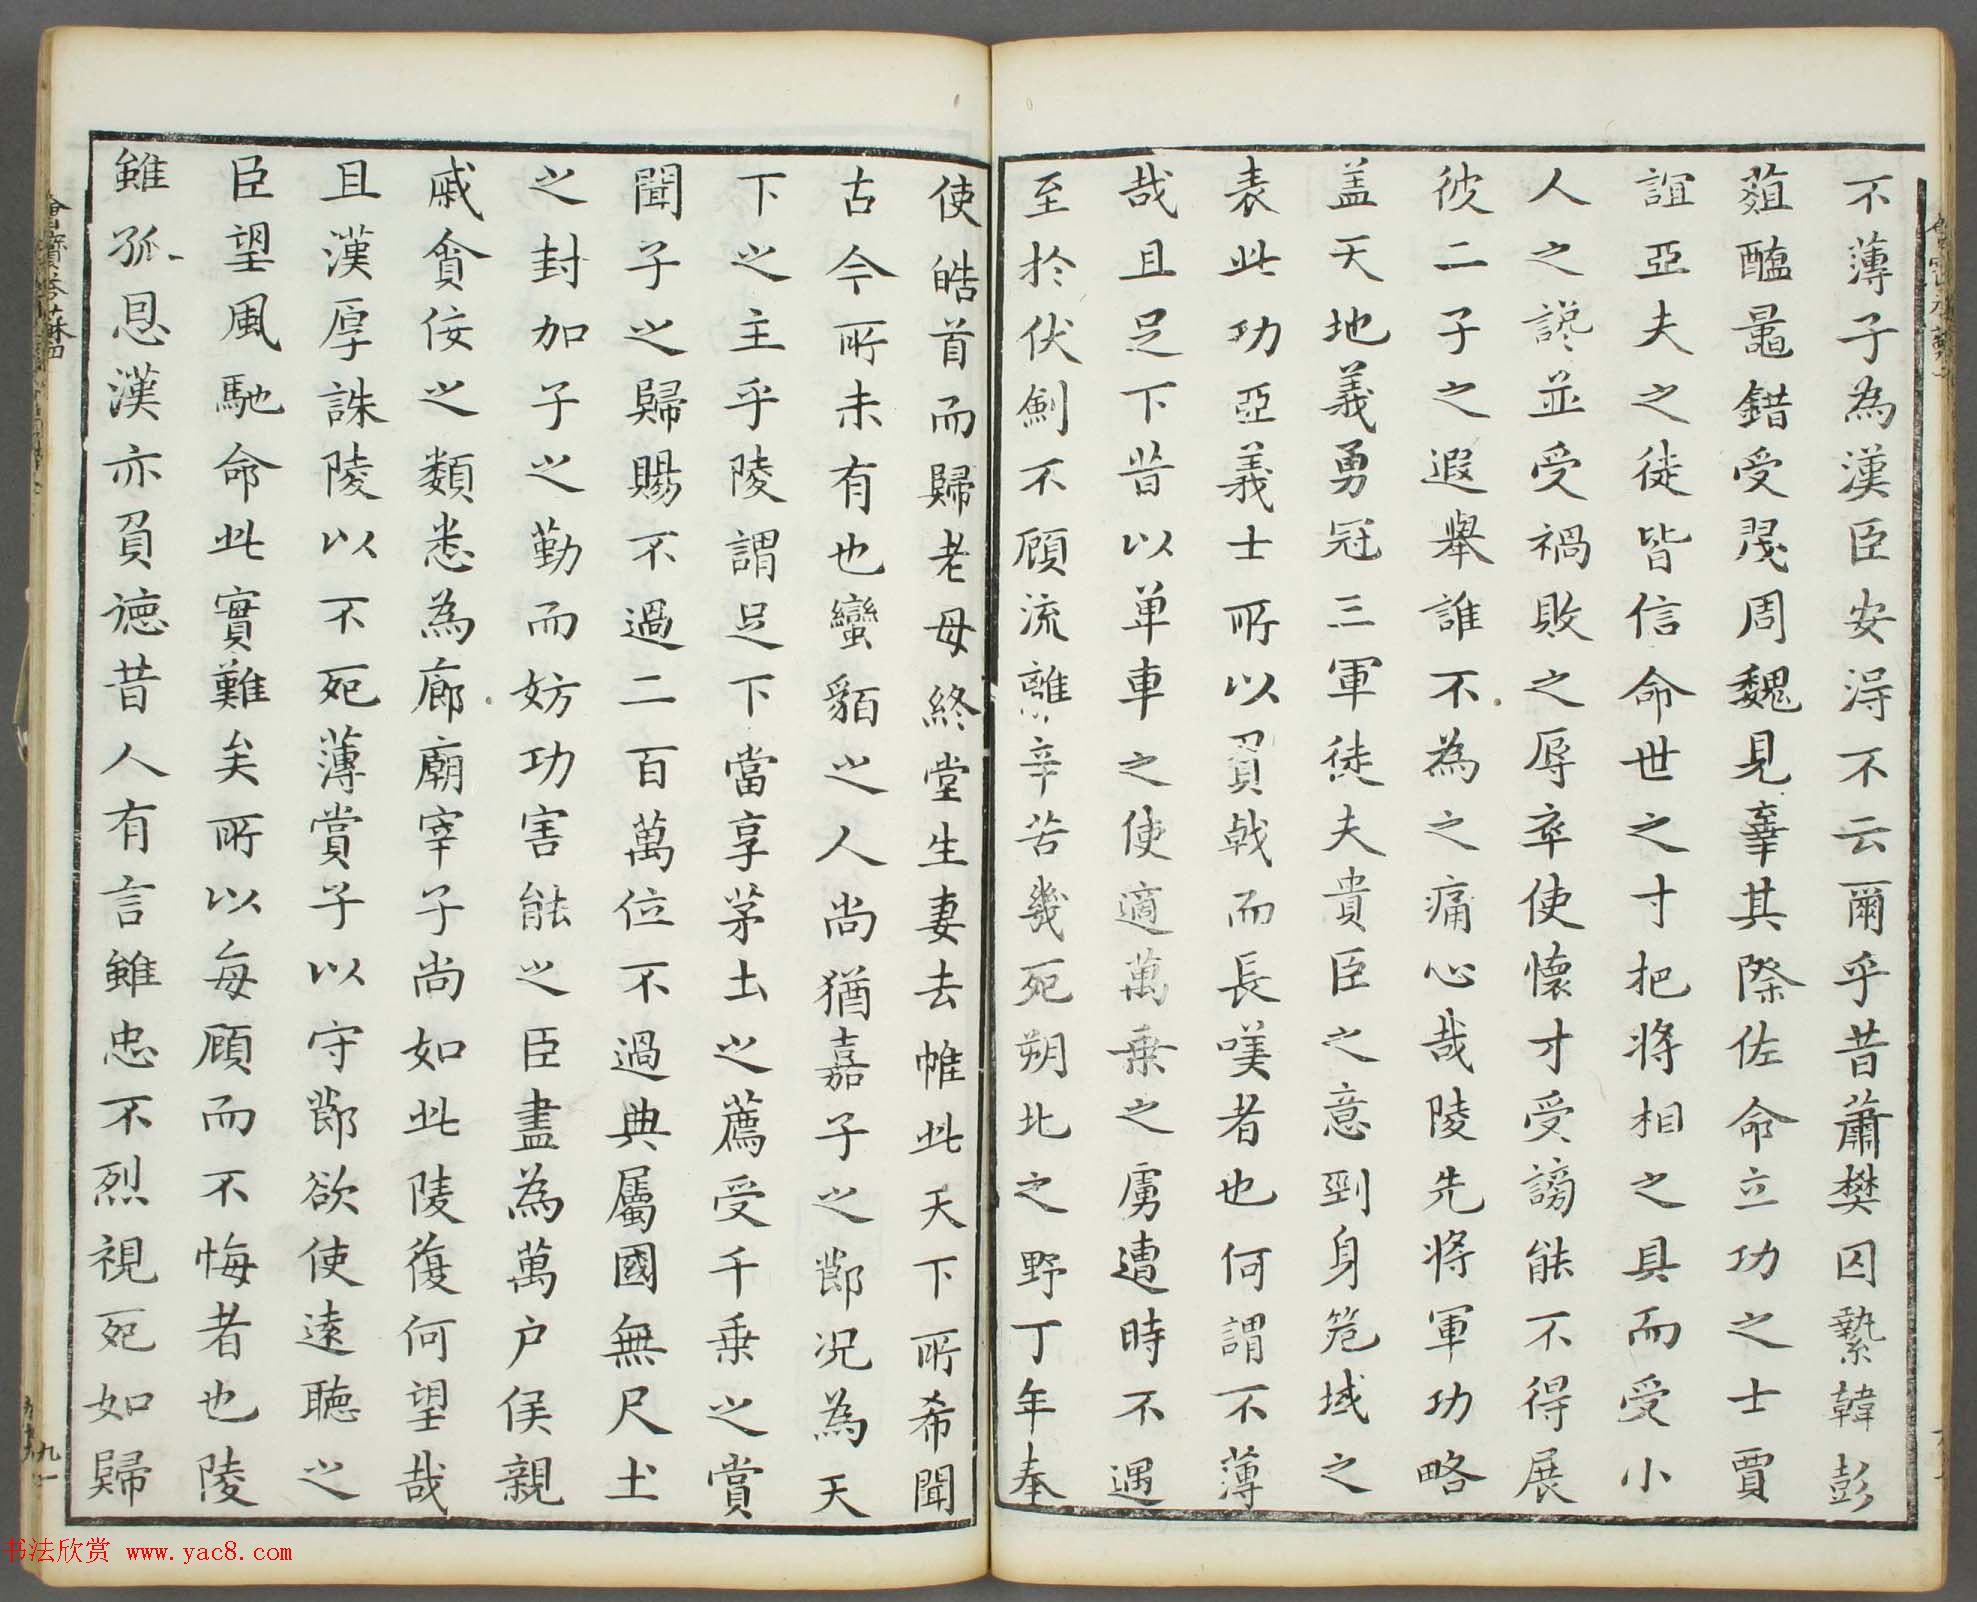 不薄子為漢臣安淂不云爾乎昔蕭樊囚縶韓彭
葅醢鼂錯受戮周魏見辜其際佐命立功之士賈
誼亞夫之徒皆信命世之寸把將相之具而受小
人之讒並受禍敗之辱卒使懷才受謗能不得展
彼二子之遐舉誰不為之痛心哉陵先將軍功略
盖天地義勇冠三軍徒夫貴臣之意剄身𥬞域之
表此功亞義士所以負戟而長嘆者也何謂不薄
哉且足下昔以单車之使適萬乗之虜遭時不遇
至於伏劍不顧流離辛苦幾死朔北之野丁年奉
使皓首而歸老母終堂生妻去帷此天下所希聞
古今所未有也蠻貊之人尚猶嘉子之節况為天
下之主乎陵謂足下當享茅土之薦受千乗之賞
聞子之歸賜不過二百萬位不過典屬國無尺土
之封加子之勤而妨功害能之臣盡為萬户侯親
戚貪佞之類悉為廊廟宰子尚如此陵復何望哉
且漢厚誅陵以不死薄賞子以守節欲使遠聽之
臣望風馳命此實難矣所以每顧而不悔者也陵
雖孤恩漢亦負德昔人有言雖忠不烈視死如歸
书法欣赏 www.yac8.com